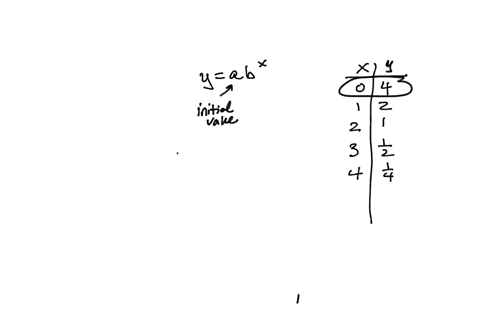 y = ab^x
initial
value
x | y
0 | 4
1 | 2
2 | 1
3 | 1/2
4 | 1/4